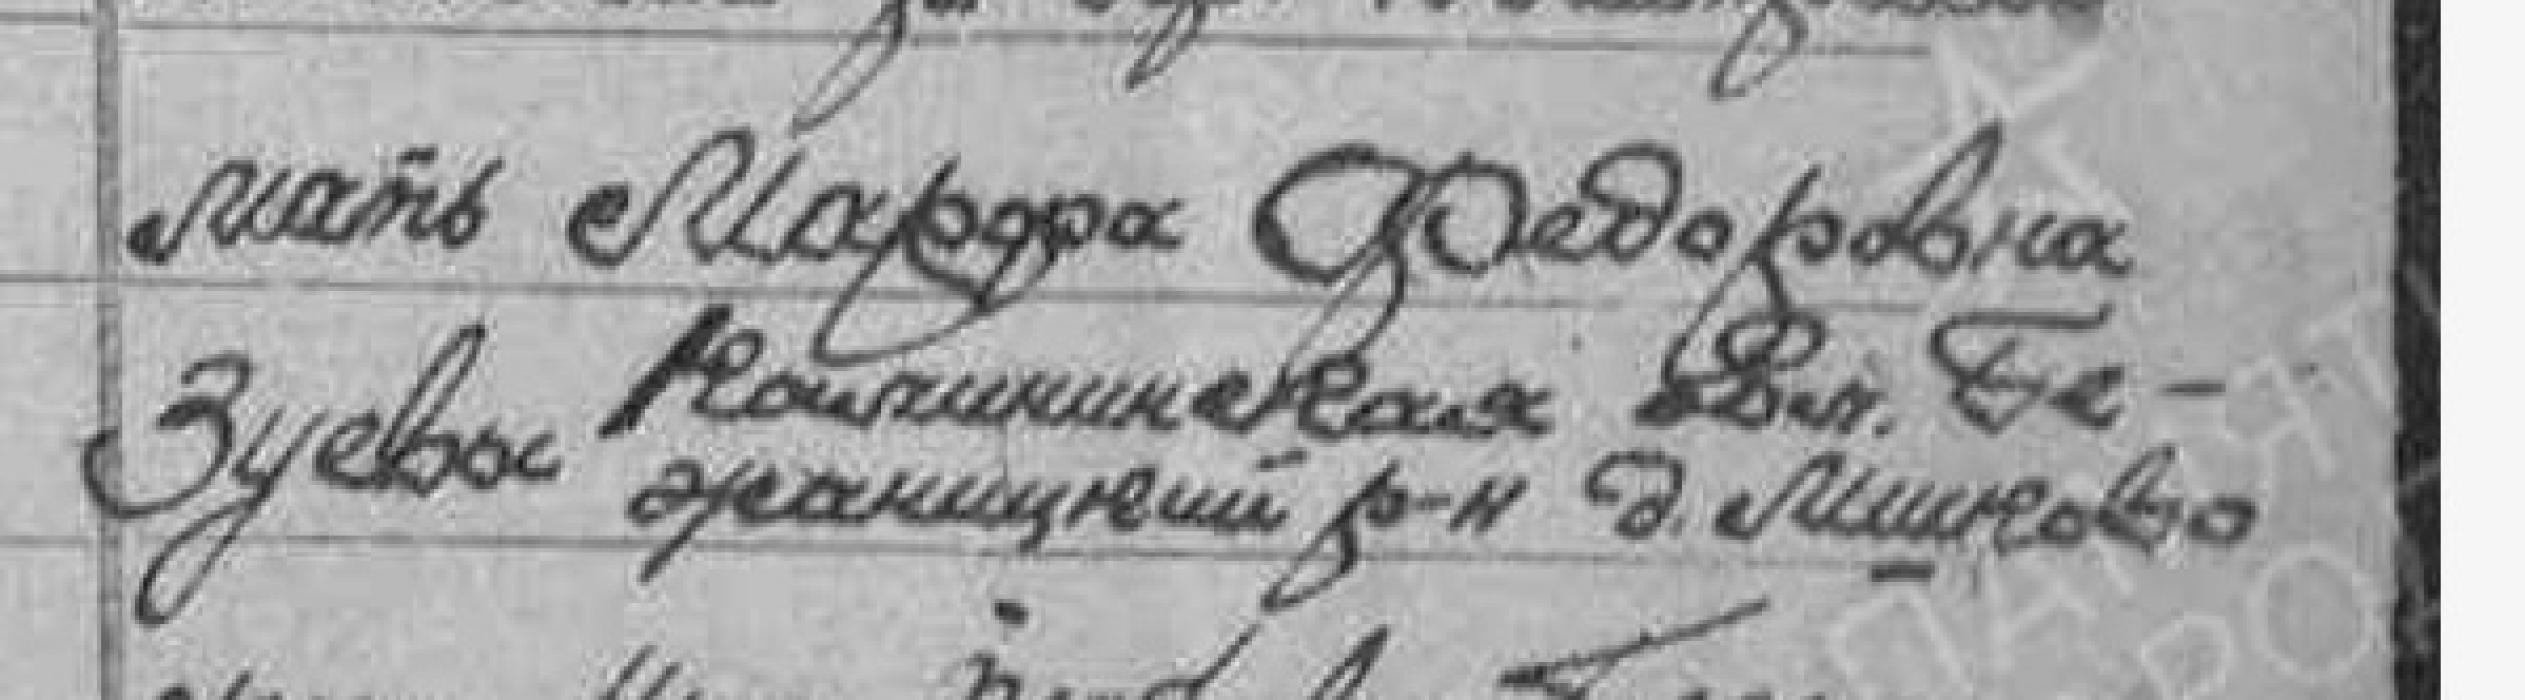 мать Марфра Федоровна
Зуевы Калининская обл. Бе-
жаницкий р-н д. Мишково